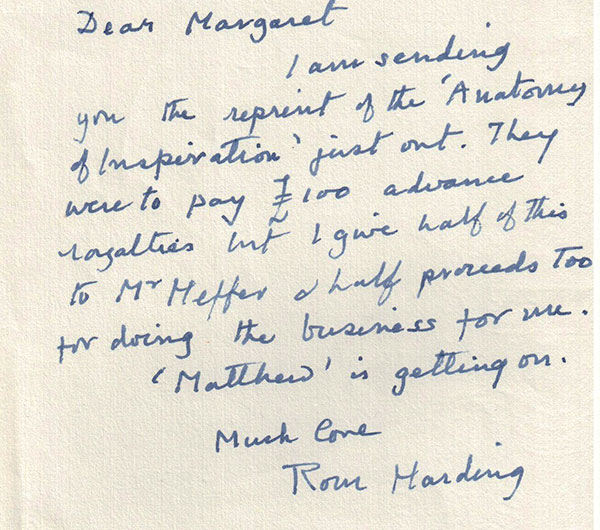 Dear Margaret
I am sending
you the reprint of the 'Anatomy
of Inspiration' just out. They
were to pay £100 advance
royalties but I give half of this
to Mr Heffer & half proceeds too
for doing the business for me.
'Matthew' is getting on.
Much love
Rom Harding